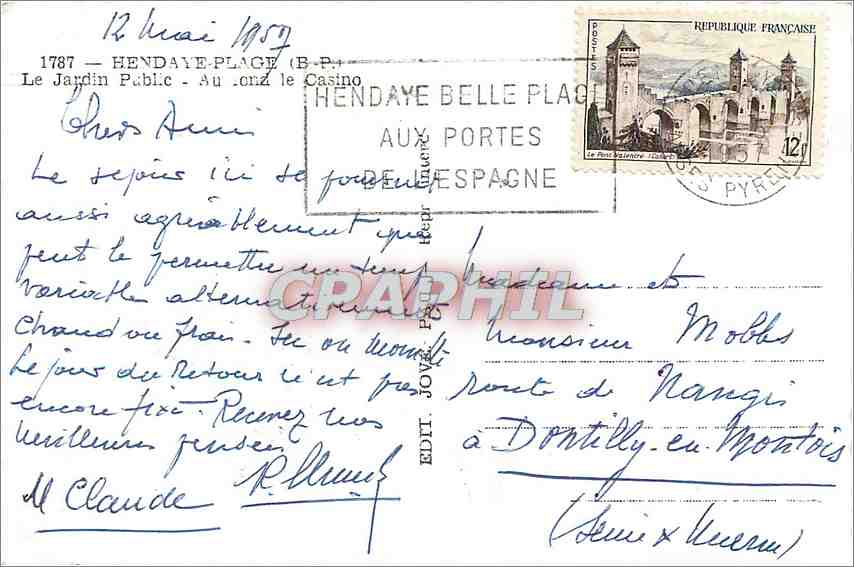 12 Mai 1957
1787 — HENDAYE-PLAGE (B.-P.)
Le Jardin Public - Au fond le Casino
HENDAYE BELLE PLAGE
AUX PORTES
DE L'ESPAGNE
POSTES
REPUBLIQUE FRANÇAISE
12F
Le Pont Valentré
PYRE
Chers Amis
Le séjour ici se poursuit
aussi agréablement que
peut le permettre un temps
variable alternativement
chaud ou frais.
Le jour du retour n'est pas
encore fixé. Recevez nos
meilleures pensées
M Claude
EDIT. JOVE, Repr. interd.
CPAPHIL
Madame et
Monsieur Mobbs
route de Nangis
à Dontilly-en-Montois
(Seine & Marne)